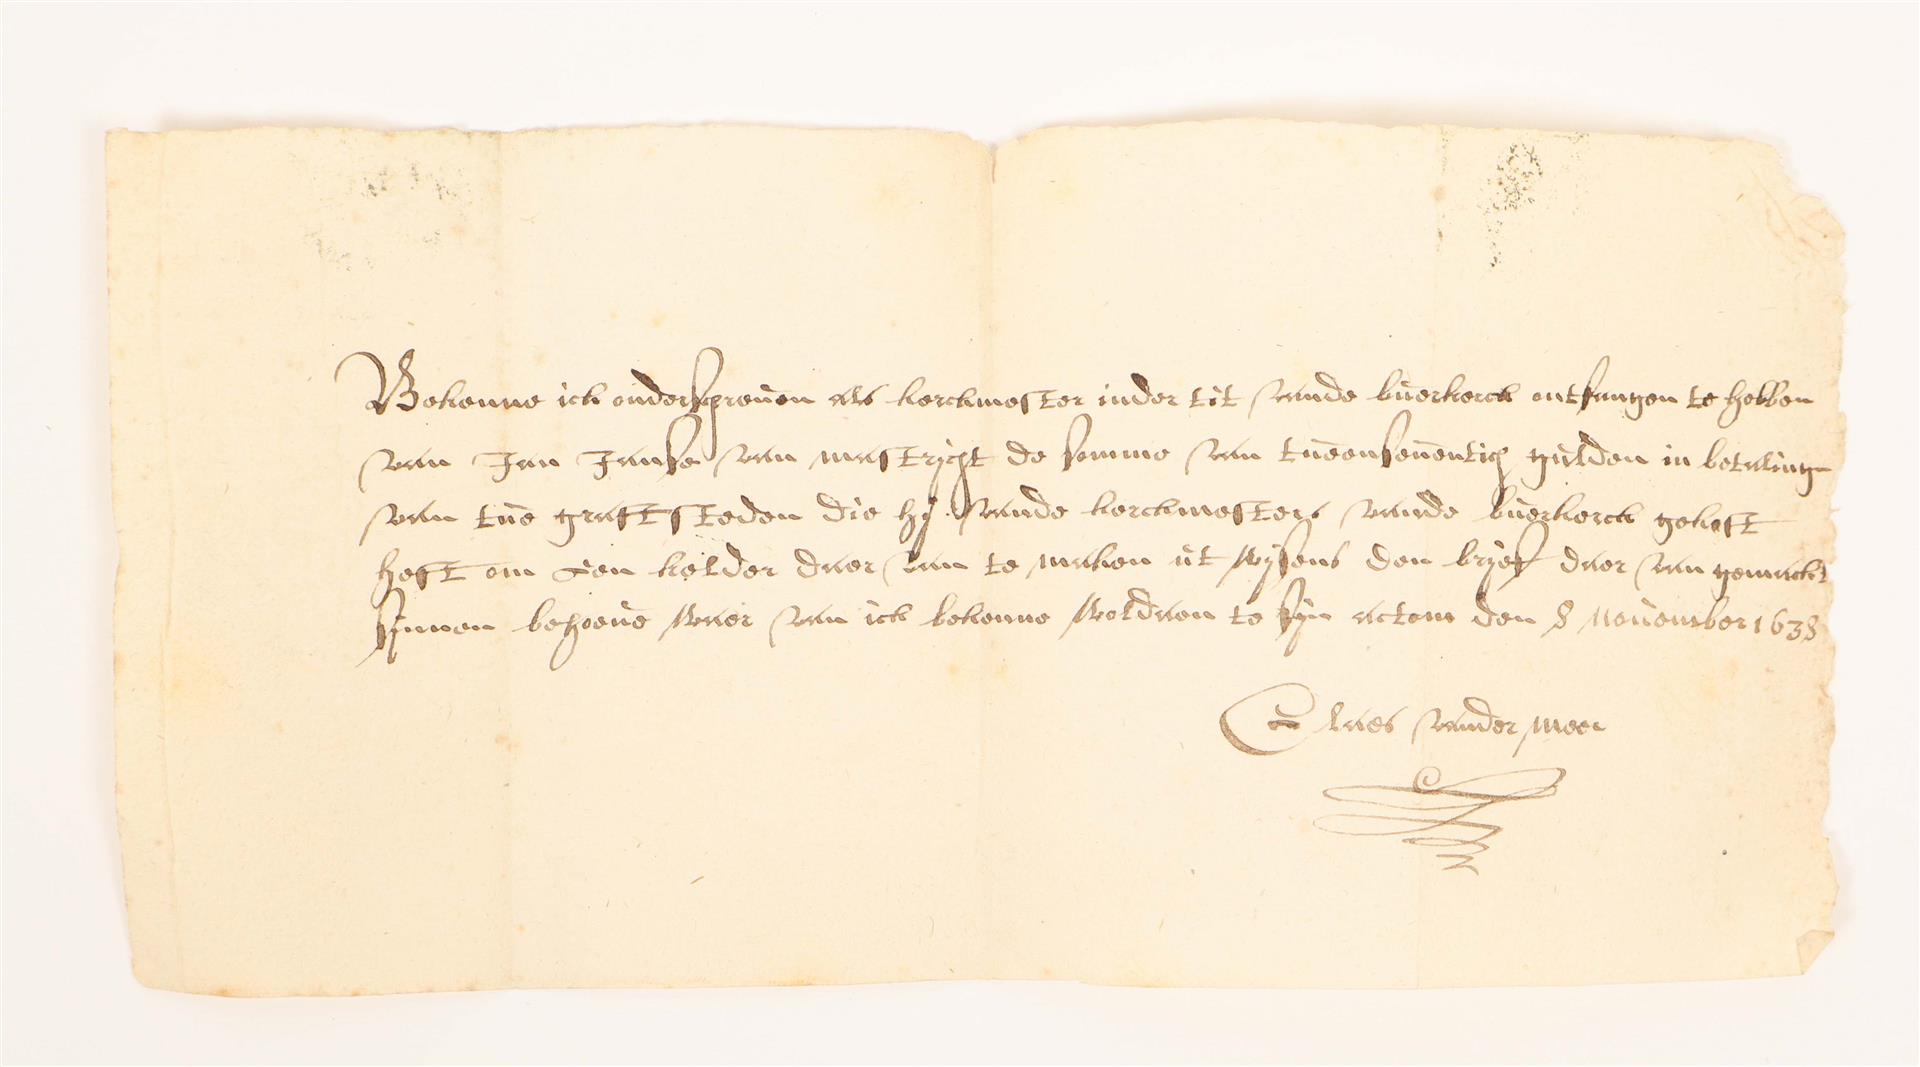 Bekenne ick onderschreuen als kerckmester inder tit vande buerkerck ontfangen te hebben
van Jan Janse van mastrycht de somme van tueensouentich gulden in betaling
van tue graftsteden die hy vande kerckmesters vande buerkerck gekoft
heft om een kelder daer van te maken uit wysens den bryef daer van gemackt
synnen behoeue waer van ick bekenne voldaen te syn actom den 8 nouember 1638
Claes vander meer